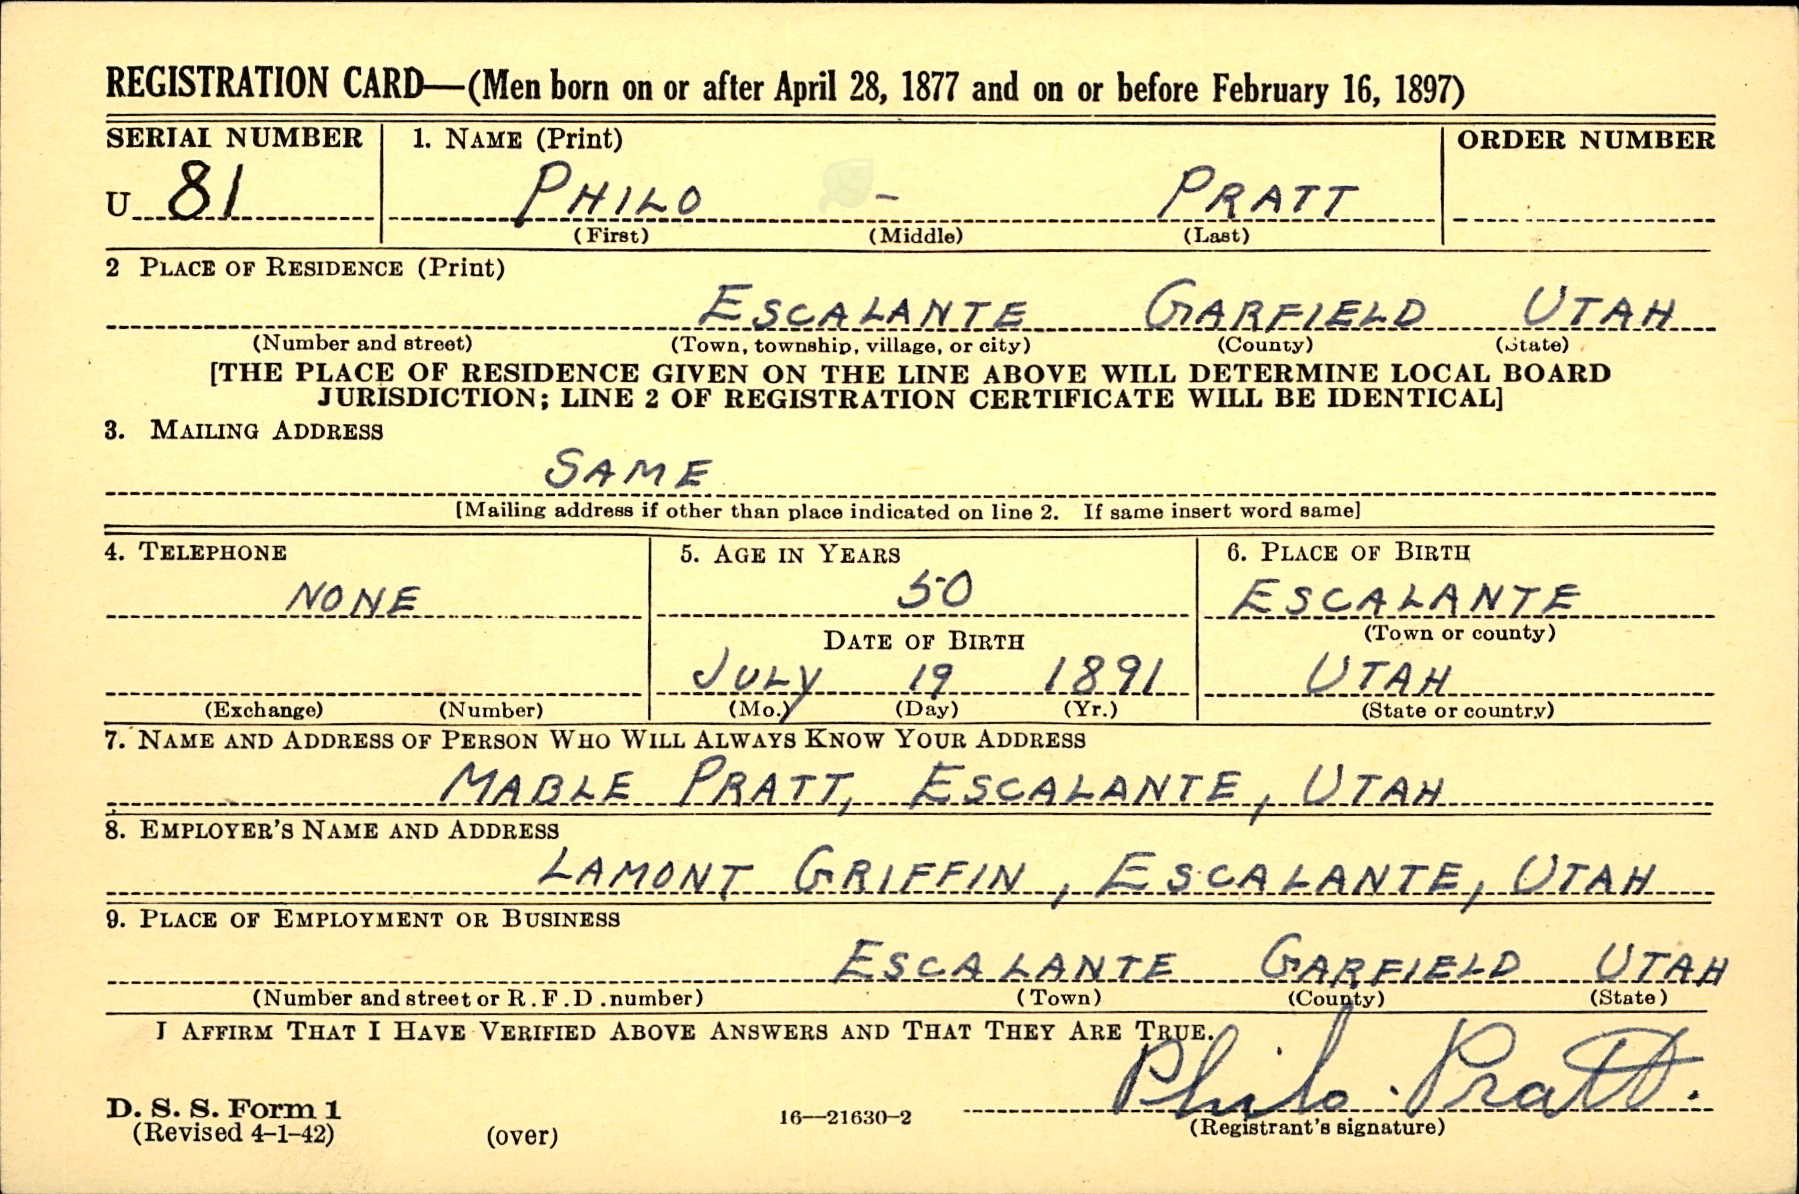 REGISTRATION CARD—(Men born on or after April 28, 1877 and on or before February 16, 1897)
SERIAL NUMBER 1. NAME (Print) ORDER NUMBER
U 81 PHILO - PRATT
(First) (Middle) (Last)
2 PLACE OF RESIDENCE (Print)
ESCALANTE GARFIELD UTAH
(Number and street) (Town, township, village, or city) (County) (State)
[THE PLACE OF RESIDENCE GIVEN ON THE LINE ABOVE WILL DETERMINE LOCAL BOARD
JURISDICTION; LINE 2 OF REGISTRATION CERTIFICATE WILL BE IDENTICAL]
3. MAILING ADDRESS
SAME
[Mailing address if other than place indicated on line 2. If same insert word same]
4. TELEPHONE 5. AGE IN YEARS 6. PLACE OF BIRTH
NONE 50 ESCALANTE
DATE OF BIRTH (Town or county)
JULY 19 1891 UTAH
(Exchange) (Number) (Mo.) (Day) (Yr.) (State or country)
7. NAME AND ADDRESS OF PERSON WHO WILL ALWAYS KNOW YOUR ADDRESS
MABLE PRATT, ESCALANTE, UTAH
8. EMPLOYER'S NAME AND ADDRESS
LAMONT GRIFFIN, ESCALANTE, UTAH
9. PLACE OF EMPLOYMENT OR BUSINESS
ESCALANTE GARFIELD UTAH
(Number and street or R.F.D. number) (Town) (County) (State)
I AFFIRM THAT I HAVE VERIFIED ABOVE ANSWERS AND THAT THEY ARE TRUE.
Philo Pratt.
D. S. S. Form 1 16—21630-2
(Revised 4-1-42) (over) (Registrant's signature)